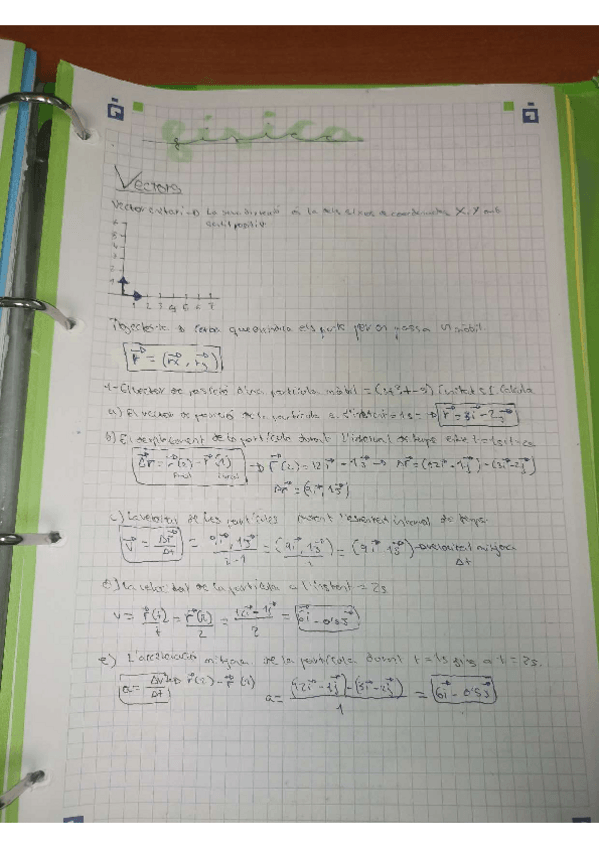 física
Vectors
Vector unitari → La seva direcció és la dels eixos de coordenades X, Y, amb
sentit positiu
1 2 3 4 5 6 7
Trajectòria → corba que indica els punts per on passa un mòbil
r = (rx, ry)
1- El vector de posició d'una partícula mòbil = (3t², t-3) [unitats SI]. Calcula
a) El vector de posició de la partícula a l'instant t=1s → r = 3i - 2j
b) El desplaçament de la partícula durant l'interval de temps entre t=1s i t=2s
Δr = r(2) - r(1) → r(2) = 12i - 1j → Δr = (12i - 1j) - (3i - 2j)
final inicial
Δr = (9i, 1j)
c) La velocitat de les partícules durant l'esmentat interval de temps
v = Δr/Δt = 9i, 1j / 2-1 = (9i, 1j) = (9i 1j) → velocitat mitjana
Δt
d) La velocitat de la partícula a l'instant = 2s
v = r(t)/t = r(2)/2 = 12i - 1j / 2 = 6i - 0'5j
e) L'acceleració mitjana de la partícula durant t = 1s fins a t = 2s.
a = Δv/Δt → r(2) - r(1) a = (12i - 1j) - (3i - 2j) / 1 = 6i - 0'5j